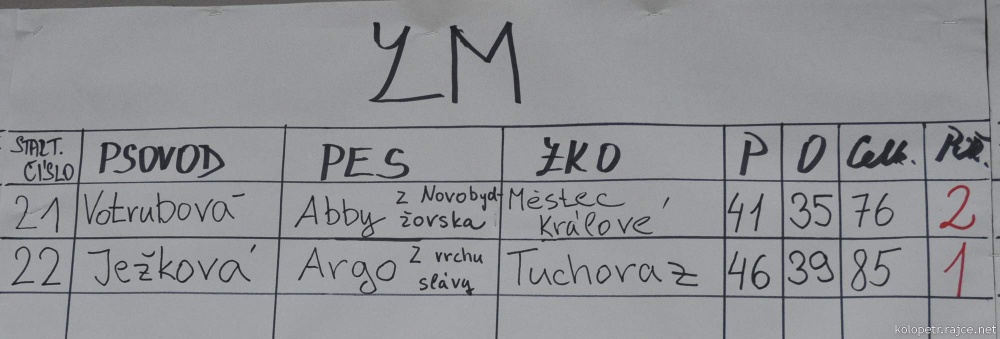 ZM
START. ČÍSLO PSOVOD PES ZKO P O Celk. POŘ.
21 Votrubová Abby z Novobydžovska Městec Králové 41 35 76 2
22 Ježková Argo z vrchu slávy Tuchoraz 46 39 85 1
kolopetr.rajce.net